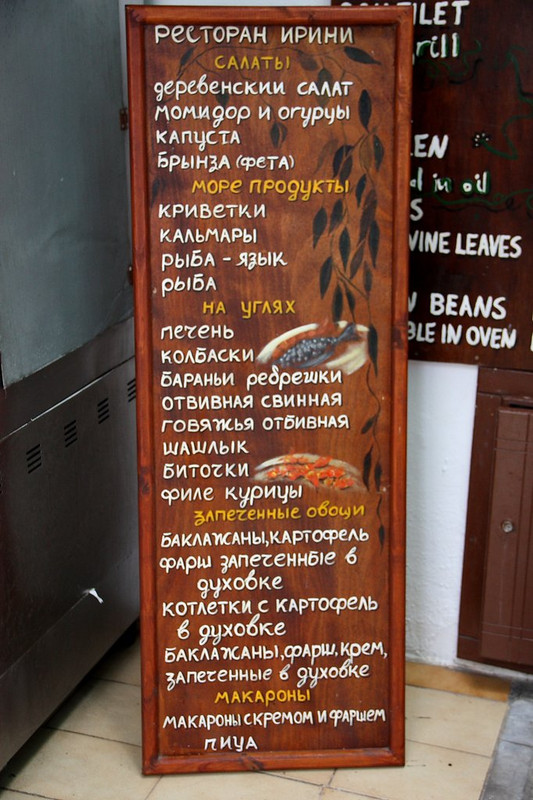 РЕСТОРАН ИРИНИ
САЛАТЫ
деревенскии САЛАТ
момидор и огурцы
КАПУСТА
БРЫНЗА (фета)
море продукты
КРИВЕТКИ
КАЛЬМАРЫ
РЫБА - ЯЗЫК
РЫБА
НА УГЛЯХ
печень
КОЛБАСКИ
БАРАНЬИ ребрешки
ОТВИВНАЯ СВИННАЯ
ГОВЯЖЬЯ ОТБИВНАЯ
ШАШЛЫК
БИТОЧКИ
филе курицы
запеченные овощи
БАКЛАЖАНЫ, КАРТОФЕЛЬ
ФАРШ запеченные в
духовке
КОТЛЕТКИ С КАРТОФЕЛЬ
в духовке
БАКЛАЖАНЫ, фарш, крем,
запеченные в духовке
МАКАРОНЫ
МАКАРОНЫ С КРЕМОМ И ФАРШЕМ
пица
FILET
grill
EN
d in oil
S
VINE LEAVES
N BEANS
BLE IN OVEN